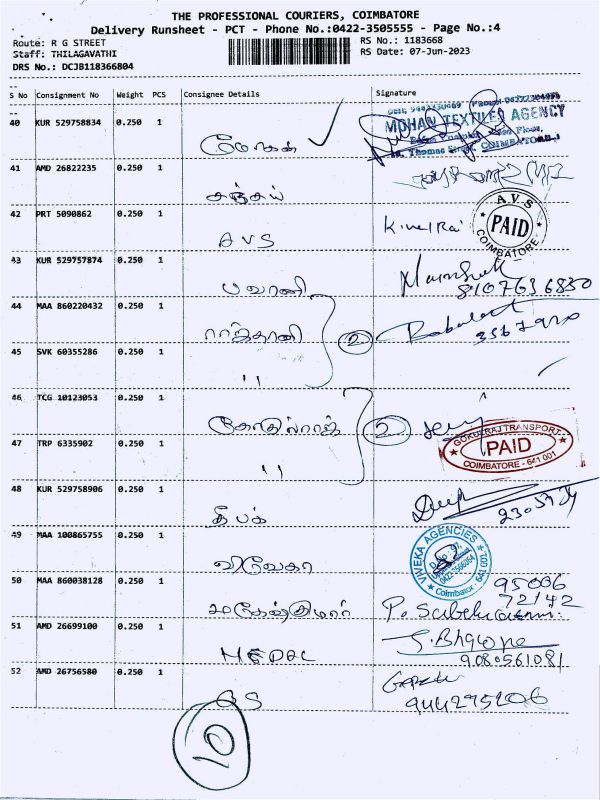 THE PROFESSIONAL COURIERS, COIMBATORE
Delivery Runsheet - PCT - Phone No.:0422-3505555 - Page No.:4
Route: R G STREET
Staff: THILAGAVATHI
DRS No.: DCJB118366804
RS No.: 1183668
RS Date: 07-Jun-2023
S No Consignment No Weight PCS Consignee Details Signature
40 KUR 529758834 0.250 1 மோகன்
MOHAN TEXTILES AGENCY
COIMBATORE
41 AMD 26822235 0.250 1 சஞ்சய்
42 PRT 5090862 0.250 1 AVS
A.V.S
PAID
COIMBATORE
43 KUR 529757874 0.250 1 பவானி
8107636850
44 MAA 860220432 0.250 1 2
45 SVK 60355286 0.250 1 "
46 TCG 10123053 0.250 1 கோகுல்ராஜ் 2
47 TRP 6335902 0.250 1 "
GOKULRAJ TRANSPORT
PAID
COIMBATORE - 641 001
48 KUR 529758906 0.250 1 தீபக்
49 MAA 100865755 0.250 1 விவேகா
VIVEKA AGENCIES
Coimbatore
50 MAA 860038128 0.250 1 மகேஸ்குமார்
95036
72142
51 AMD 26699100 0.250 1
9080561081
52 AMD 26756580 0.250 1 GS
944275206
10